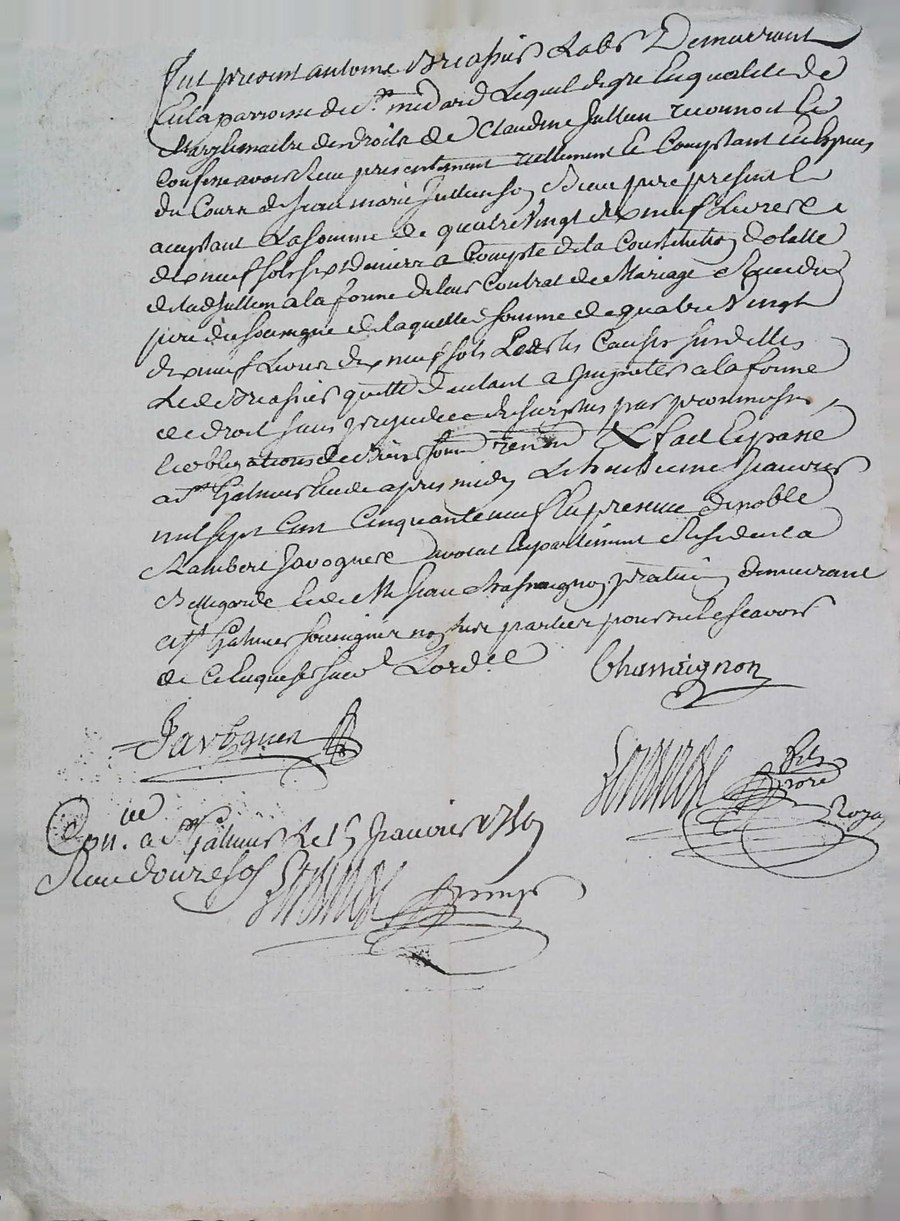 fut present antoine Breassier Labr Demeurant
En la parroisse de St. medard Lequel de gre En qualite de
Mary & maitre des droits de Claudine Jullien reconnoit &
Confesse avoir Receu presentement reellement & Comptant
du Cours de Jean marie Jullien son Beau pere present &
acceptant La somme de quatre Vingt dix neuf Livres &
dix neuf sols six deniers a Compte de la Constitution dotalle
de lad Jullien a la forme de leur Contrat de Mariage Receu du
de laquelle somme de quatre Vingt
dix neuf Livres dix neuf sols Causes surdittes
Led Breassier quitte D'autant a la forme
de droit sans prejudice du surplus par promesse,
& obligations de biens soum renon & fait & passé
a St Galmier Etude apres midy Le huitieme Janvier
mil sept Cent Cinquante neuf En presence de noble
Rambert Javoguere avocat En parlement Residant a
Bellegarde & de Me Jean Chassaignon praticien demeurant
a St Galmier soussignes non lesd parties pour ne le scavoir
de Ce Enquises & sur Lordce
Chassaignon
Javoguere
not
Royal
Con. lle a St Galmier Le 15 Janvier 1759
Receu douze sols